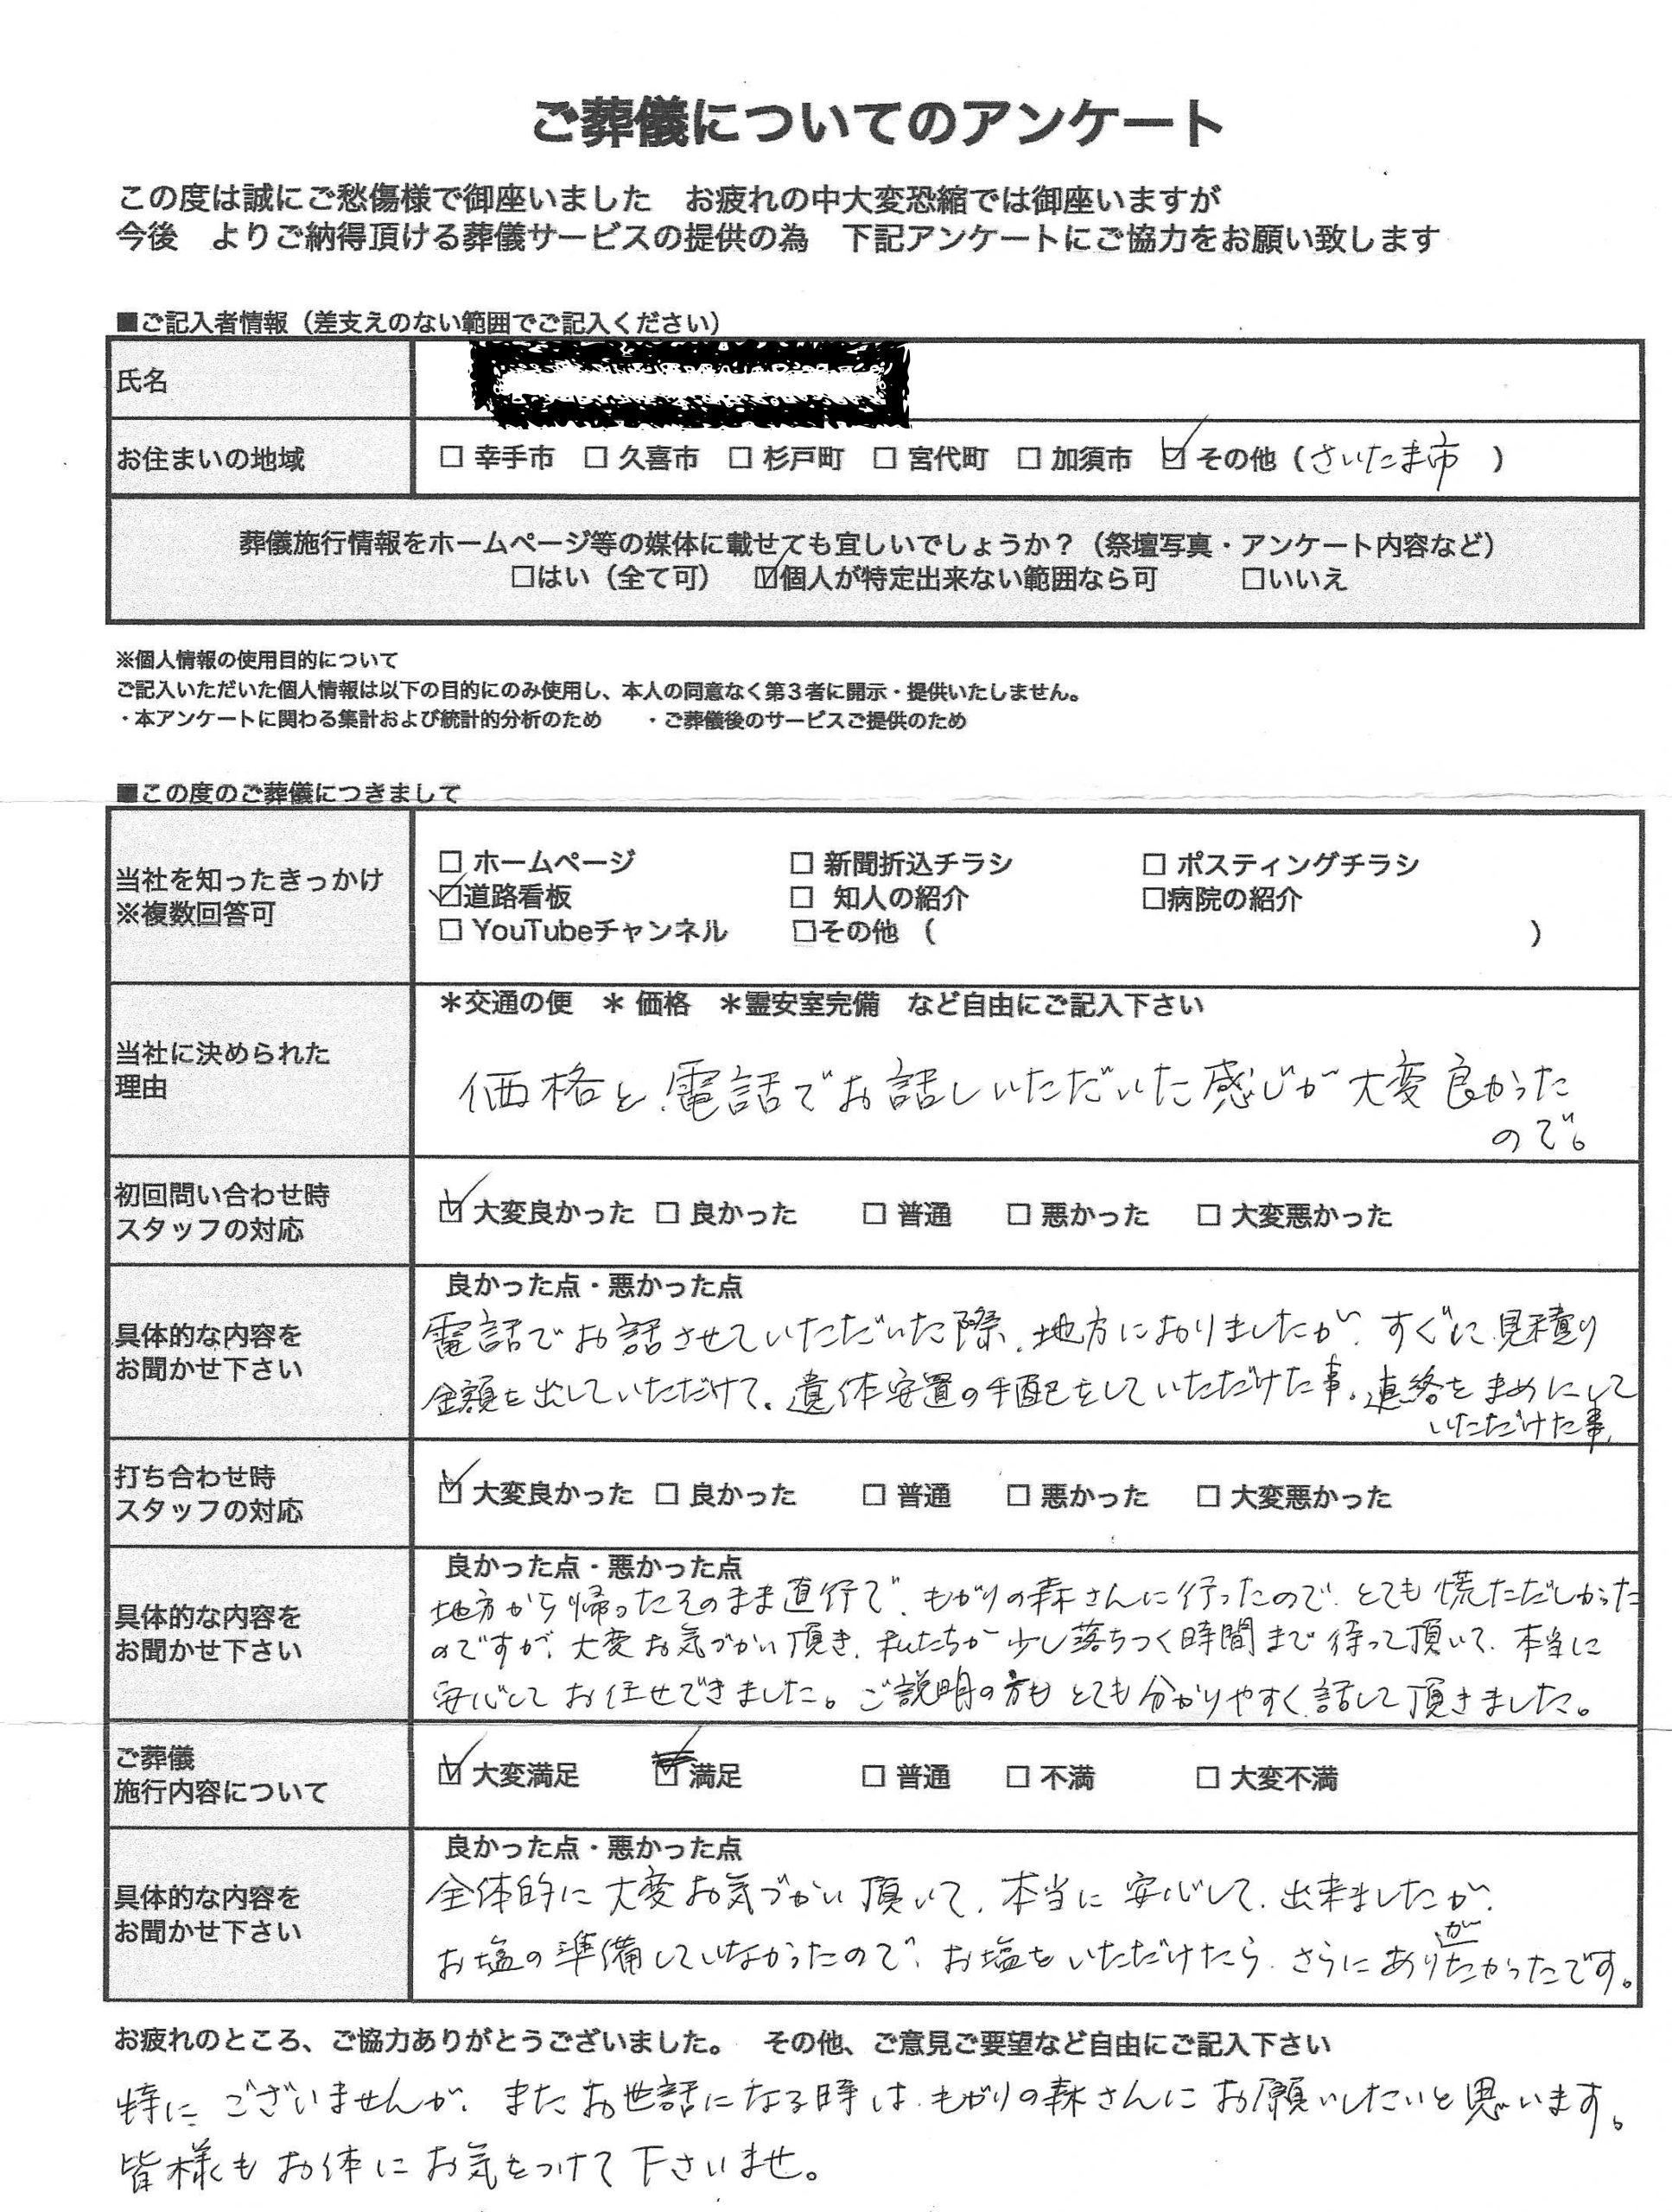 ご葬儀についてのアンケート
この度は誠にご愁傷様で御座いました　お疲れの中大変恐縮では御座いますが
今後　よりご納得頂ける葬儀サービスの提供の為　下記アンケートにご協力をお願い致します
■ご記入者情報（差支えのない範囲でご記入ください）
氏名
お住まいの地域　□ 幸手市　□ 久喜市　□ 杉戸町　□ 宮代町　□ 加須市　☑ その他（さいたま市　）
葬儀施行情報をホームページ等の媒体に載せても宜しいでしょうか？（祭壇写真・アンケート内容など）
□はい（全て可）　☑個人が特定出来ない範囲なら可　□いいえ
※個人情報の使用目的について
ご記入いただいた個人情報は以下の目的にのみ使用し、本人の同意なく第３者に開示・提供いたしません。
・本アンケートに関わる集計および統計的分析のため　・ご葬儀後のサービスご提供のため
■この度のご葬儀につきまして
当社を知ったきっかけ
※複数回答可
□ ホームページ　□ 新聞折込チラシ　□ ポスティングチラシ
☑道路看板　□ 知人の紹介　□病院の紹介
□ YouTubeチャンネル　□その他（　）
当社に決められた
理由
＊交通の便　＊ 価格　＊霊安室完備　など自由にご記入下さい
価格と、電話でお話しいただいた感じが大変良かった
ので。
初回問い合わせ時
スタッフの対応
☑ 大変良かった　□ 良かった　□ 普通　□ 悪かった　□ 大変悪かった
具体的な内容を
お聞かせ下さい
良かった点・悪かった点
電話でお話させていただいた際、地方におりましたが、すぐに見積り
金額を出していただけて、遺体安置の手配をしていただけた事、連絡をまめにして
いただけた事、
打ち合わせ時
スタッフの対応
☑ 大変良かった　□ 良かった　□ 普通　□ 悪かった　□ 大変悪かった
具体的な内容を
お聞かせ下さい
良かった点・悪かった点
地方から帰ったそのまま直行で、もがりの森さんに行ったので、とても慌ただしかった
のですが、大変お気づかい頂き、私たちが少し落ちつく時間まで待って頂いて、本当に
安心してお任せできました。ご説明の方もとても分かりやすく話して頂きました。
ご葬儀
施行内容について
☑ 大変満足　☑ 満足　□ 普通　□ 不満　□ 大変不満
具体的な内容を
お聞かせ下さい
良かった点・悪かった点
全体的に大変お気づかい頂いて、本当に安心して、出来ましたが、
お塩の準備していなかったので、お塩をいただけたら、さらにありがたかったです。
お疲れのところ、ご協力ありがとうございました。　その他、ご意見ご要望など自由にご記入下さい
特にございませんが、またお世話になる時は、もがりの森さんにお願いしたいと思います。
皆様もお体にお気をつけて下さいませ。